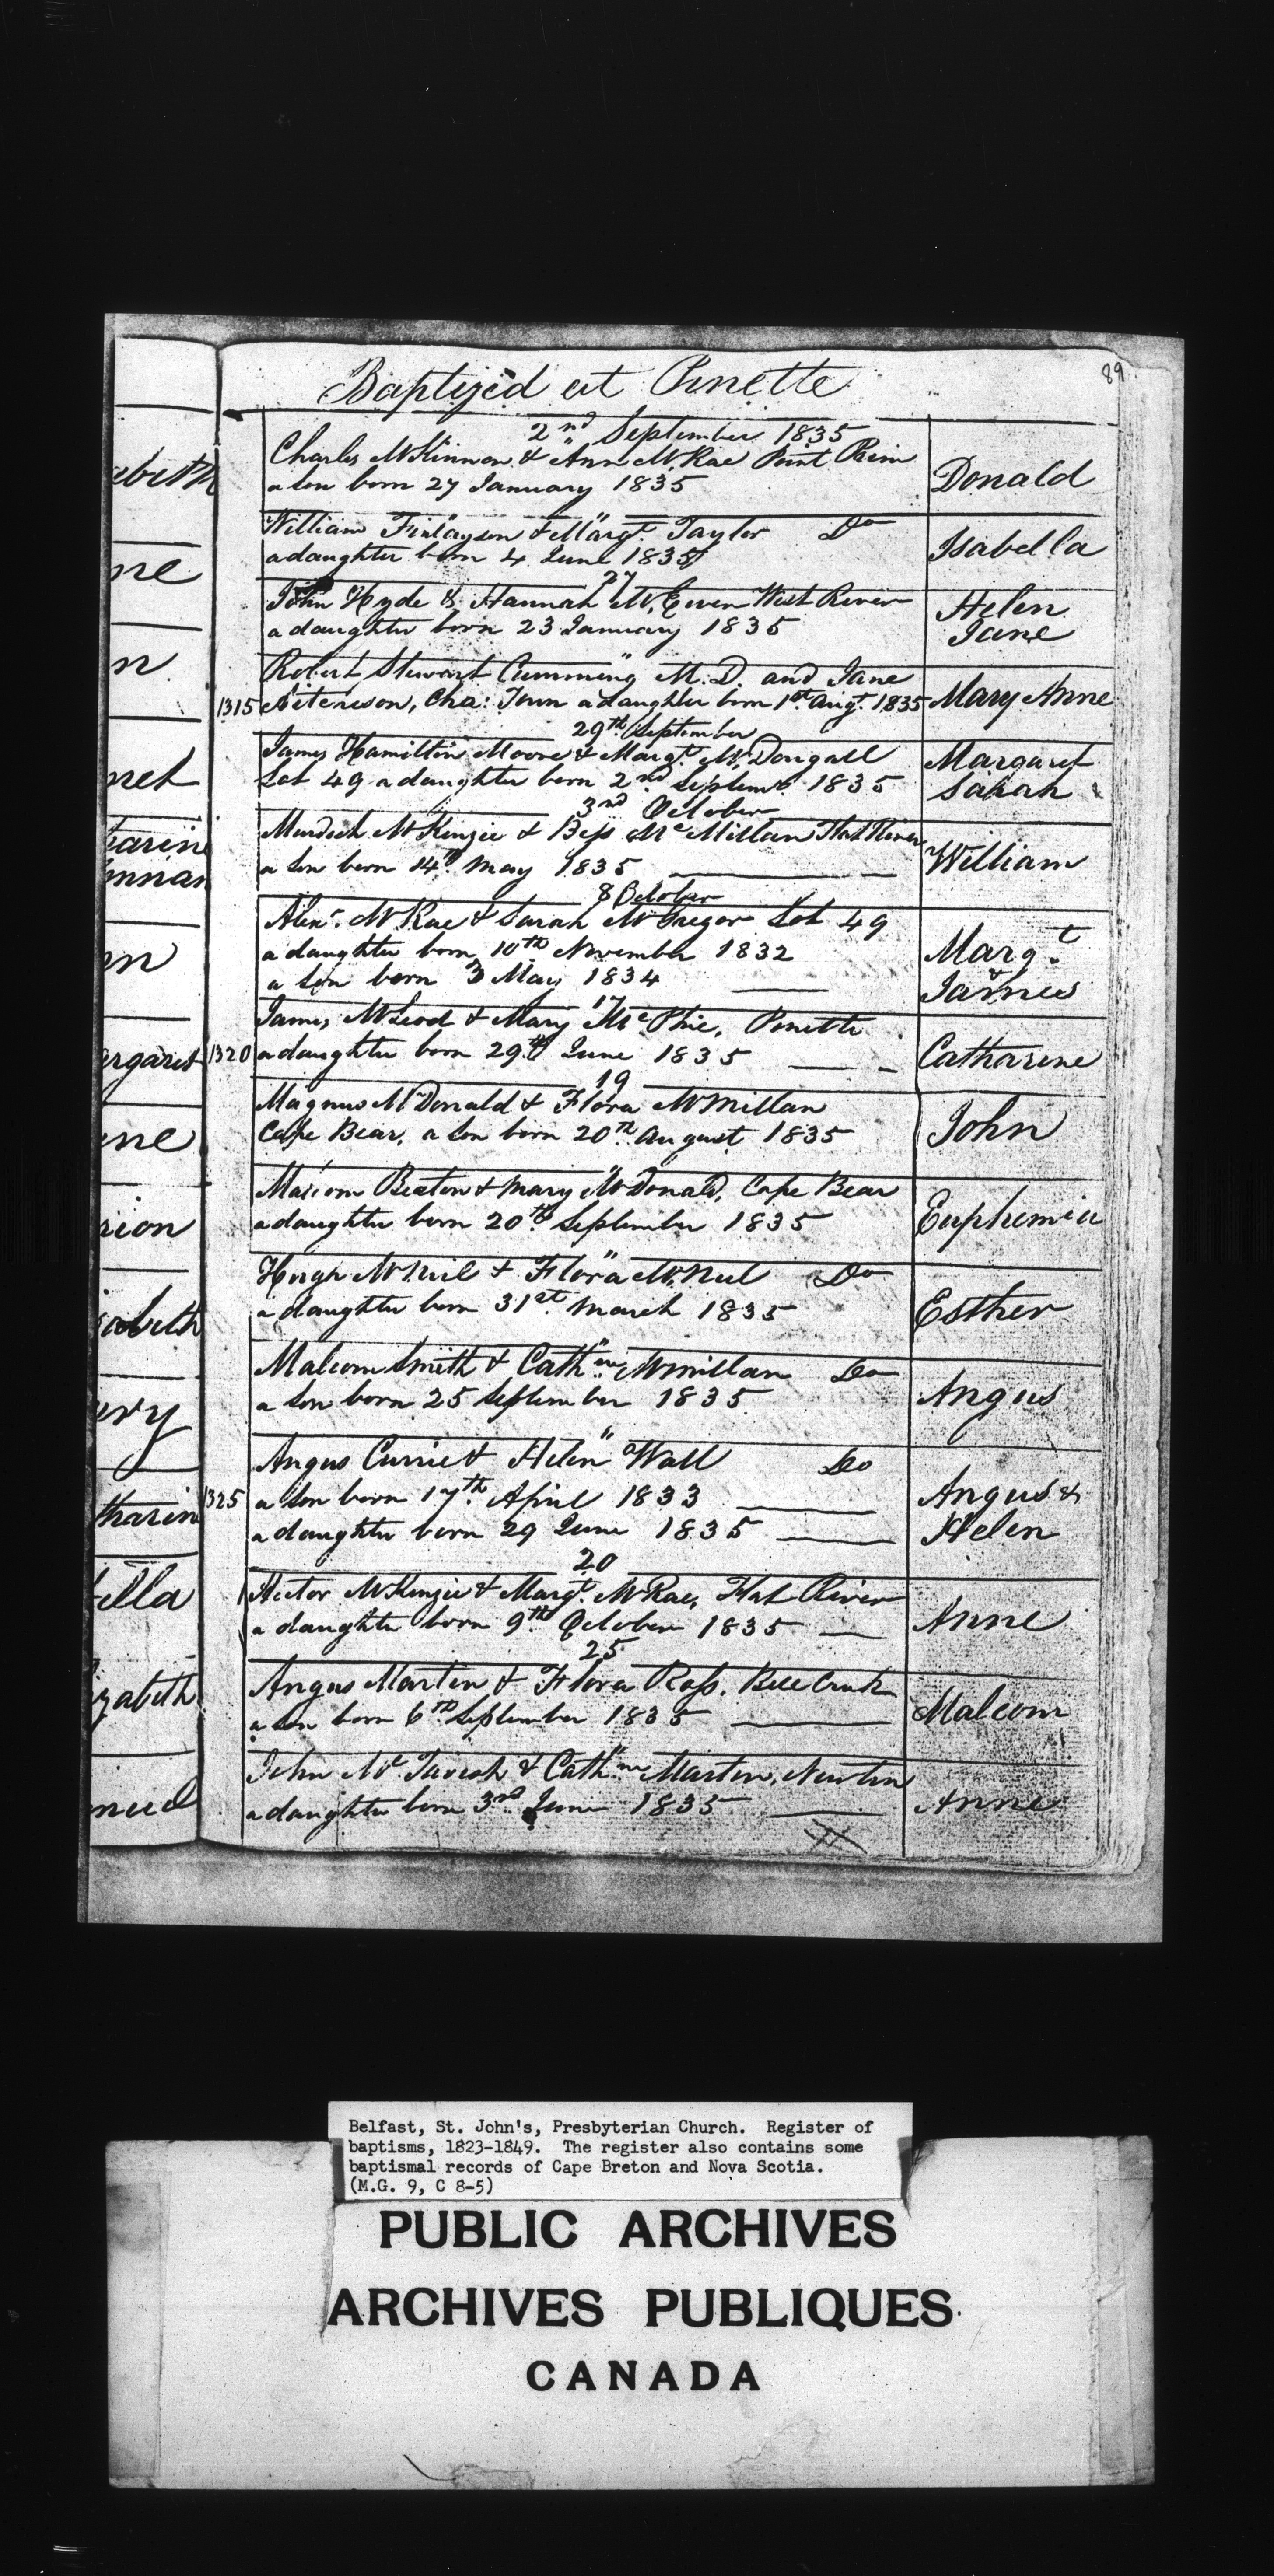 89
Baptized at Pinette
abeth
2nd September 1835
Charles McKinnon & Ann McRae Point Prim
a son born 27 January 1835
Donald
William Finlayson & Margt. Taylor Do
a daughter born 4 June 1835
Isabella
ne
27
John Hyde & Hannah McEwen West River
a daughter born 23 January 1835
Helen
Jane
n
Robert Stewart Cumming M.D. and Jane
1315 Aitcheson, Cha: Town a daughter born 1st Augt. 1835
Mary Anne
29th September
James Hamilton Moore & Margt. McDougall
Lot 49 a daughter born 2nd Septemr 1835
Margaret
Sarah
ret
3rd October
Murdoch McKenzie & Bess McMillan Flat River
a son born 14th May 1835
William
tharine
nnan
8 October
Alexr. McRae & Sarah McGregor Lot 49
a daughter born 10th November 1832
a son born 3 May 1834
Margt.
&
James
nn
17
James McLeod & Mary McPhie, Pinette
1320 a daughter born 29th June 1835
Catharine
argaret
19
Magnus McDonald & Flora McMillan
Cape Bear, a son born 20th August 1835
John
ne
Malcom Beaton & Mary McDonald, Cape Bear
a daughter born 20th September 1835
Euphemia
rion
Hugh McNeil & Flora McNeil Do
a daughter born 31st March 1835
Esther
zabeth
Malcom Smith & Cathne McMillan Do
a son born 25 September 1835
Angus
ary
Angus Currie & Helen Wall Do
1325 a son born 17th April 1833
a daughter born 29 June 1835
Angus &
Helen
tharine
20
Hector McKenzie & Margt. McRae, Flat River
a daughter born 9th October 1835
Anne
ella
25
Angus Martin & Flora Ross, Belle Creek
a son born 6th September 1835
Malcom
zabeth
John McTavish & Cathne Martin, Newton
a daughter born 3rd June 1835
Anne
Belfast, St. John's, Presbyterian Church. Register of
baptisms, 1823-1849. The register also contains some
baptismal records of Cape Breton and Nova Scotia.
(M.G. 9, C 8-5)
PUBLIC ARCHIVES
ARCHIVES PUBLIQUES
CANADA